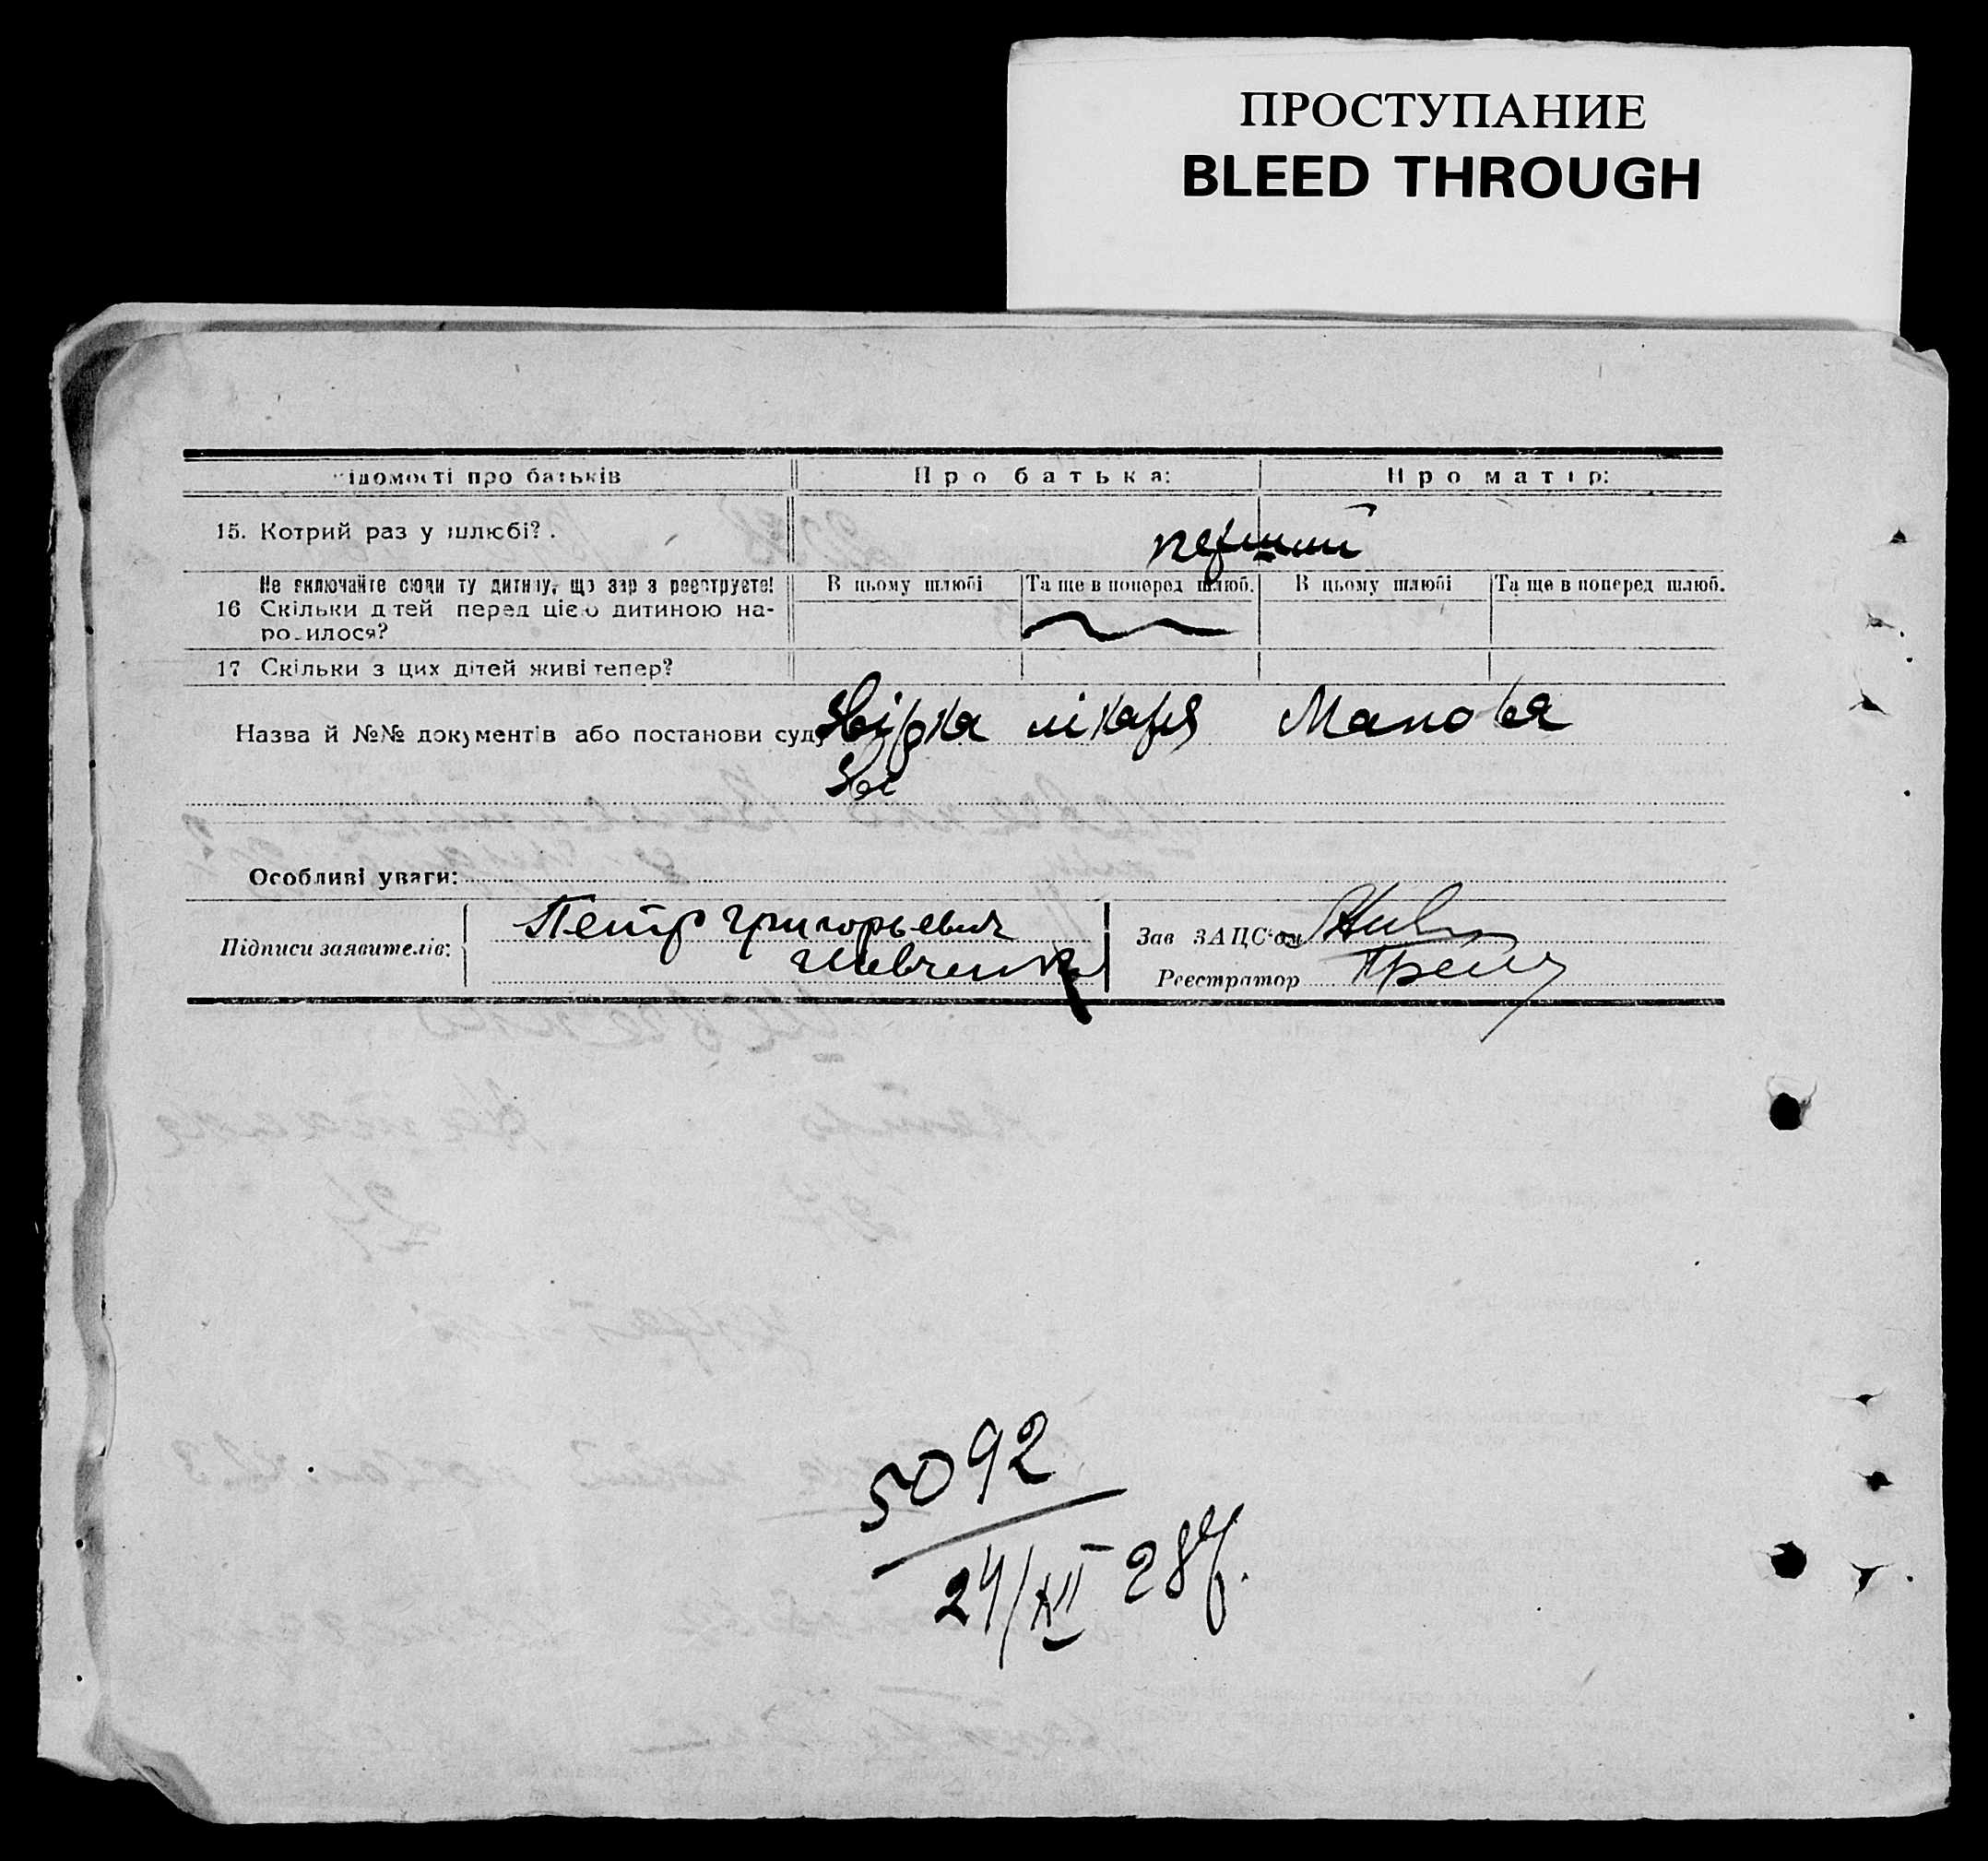 ПРОСТУПАНИЕ
BLEED THROUGH
ідомості про батьків Про батька: Про матір:
15. Котрий раз у шлюбі? . перший
Не включайте сюди ту дитину, що зараз реєструєте! В цьому шлюбі Та ще в поперед шлюб. В цьому шлюбі Та ще в поперед шлюб.
16 Скільки дітей перед цією дитиною на-
родилося?
17 Скільки з цих дітей живі тепер?
Назва й №№ документів або постанови суду лікаря
Особливі уваги:
Підписи заявителів: Петр Григорьевич Зав ЗАЦС'ом
Шевченко Реєстратор
5092
24/XII 28р.